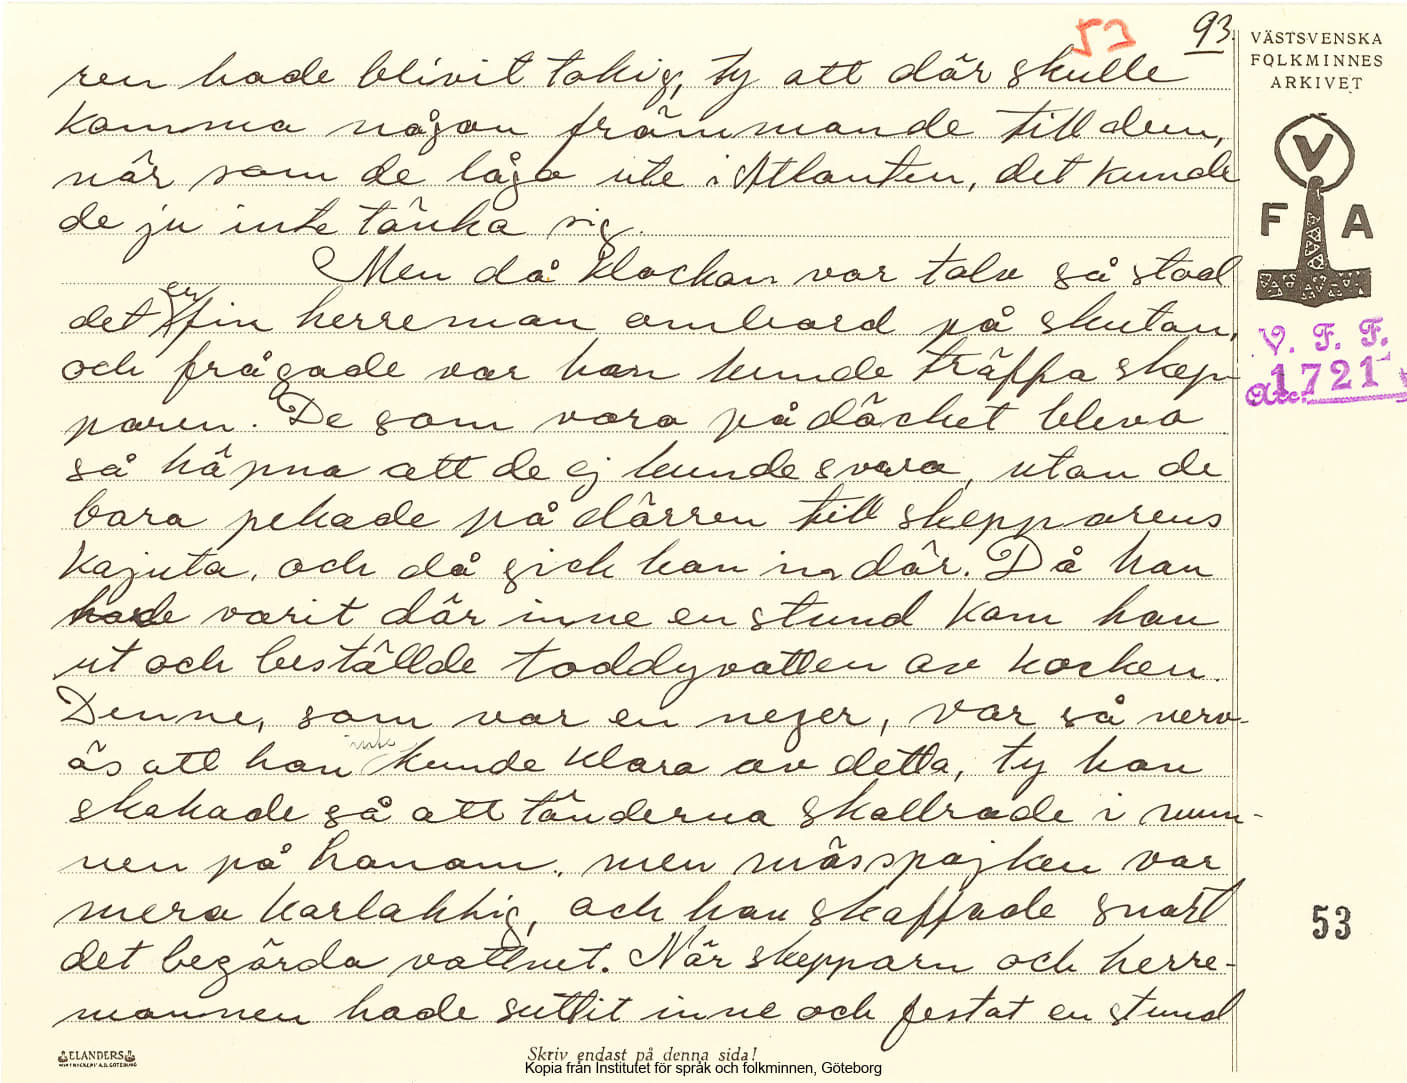 53
93.
VÄSTSVENSKA
FOLKMINNES
ARKIVET
ren hade blivit tokig, ty att där skulle
komma någon främmande till dem,
når som de lågo ute i Atlanten, det kunde
de ju inte tänka sig.
Men då klockan var tolv så stod
det en fin herreman ombord på skutan,
och frågade var han kunde träffa skep-
paren. De som voro på däcket blevo
så häpna att de ej kunde svara, utan de
bara pekade på dörren till skepparens
kajuta, och då gick han in där. Då han
hade varit där inne en stund kom han
ut och beställde toddyvatten av kocken.
Denne, som var en neger, var så nerv-
ös att han inte kunde klara av detta, ty han
skakade så att tänderna skallrade i mun-
nen på honom, men mässpojken var
mera karlaktig, och han skaffade snart
det begärda vattnet. När skepparn och herre-
mannen hade suttit inne och festat en stund
V
F A
V. F. F.
Acc. 1721
53
ELANDERS
Skriv endast på denna sida!
Kopia från Institutet för språk och folkminnen, Göteborg